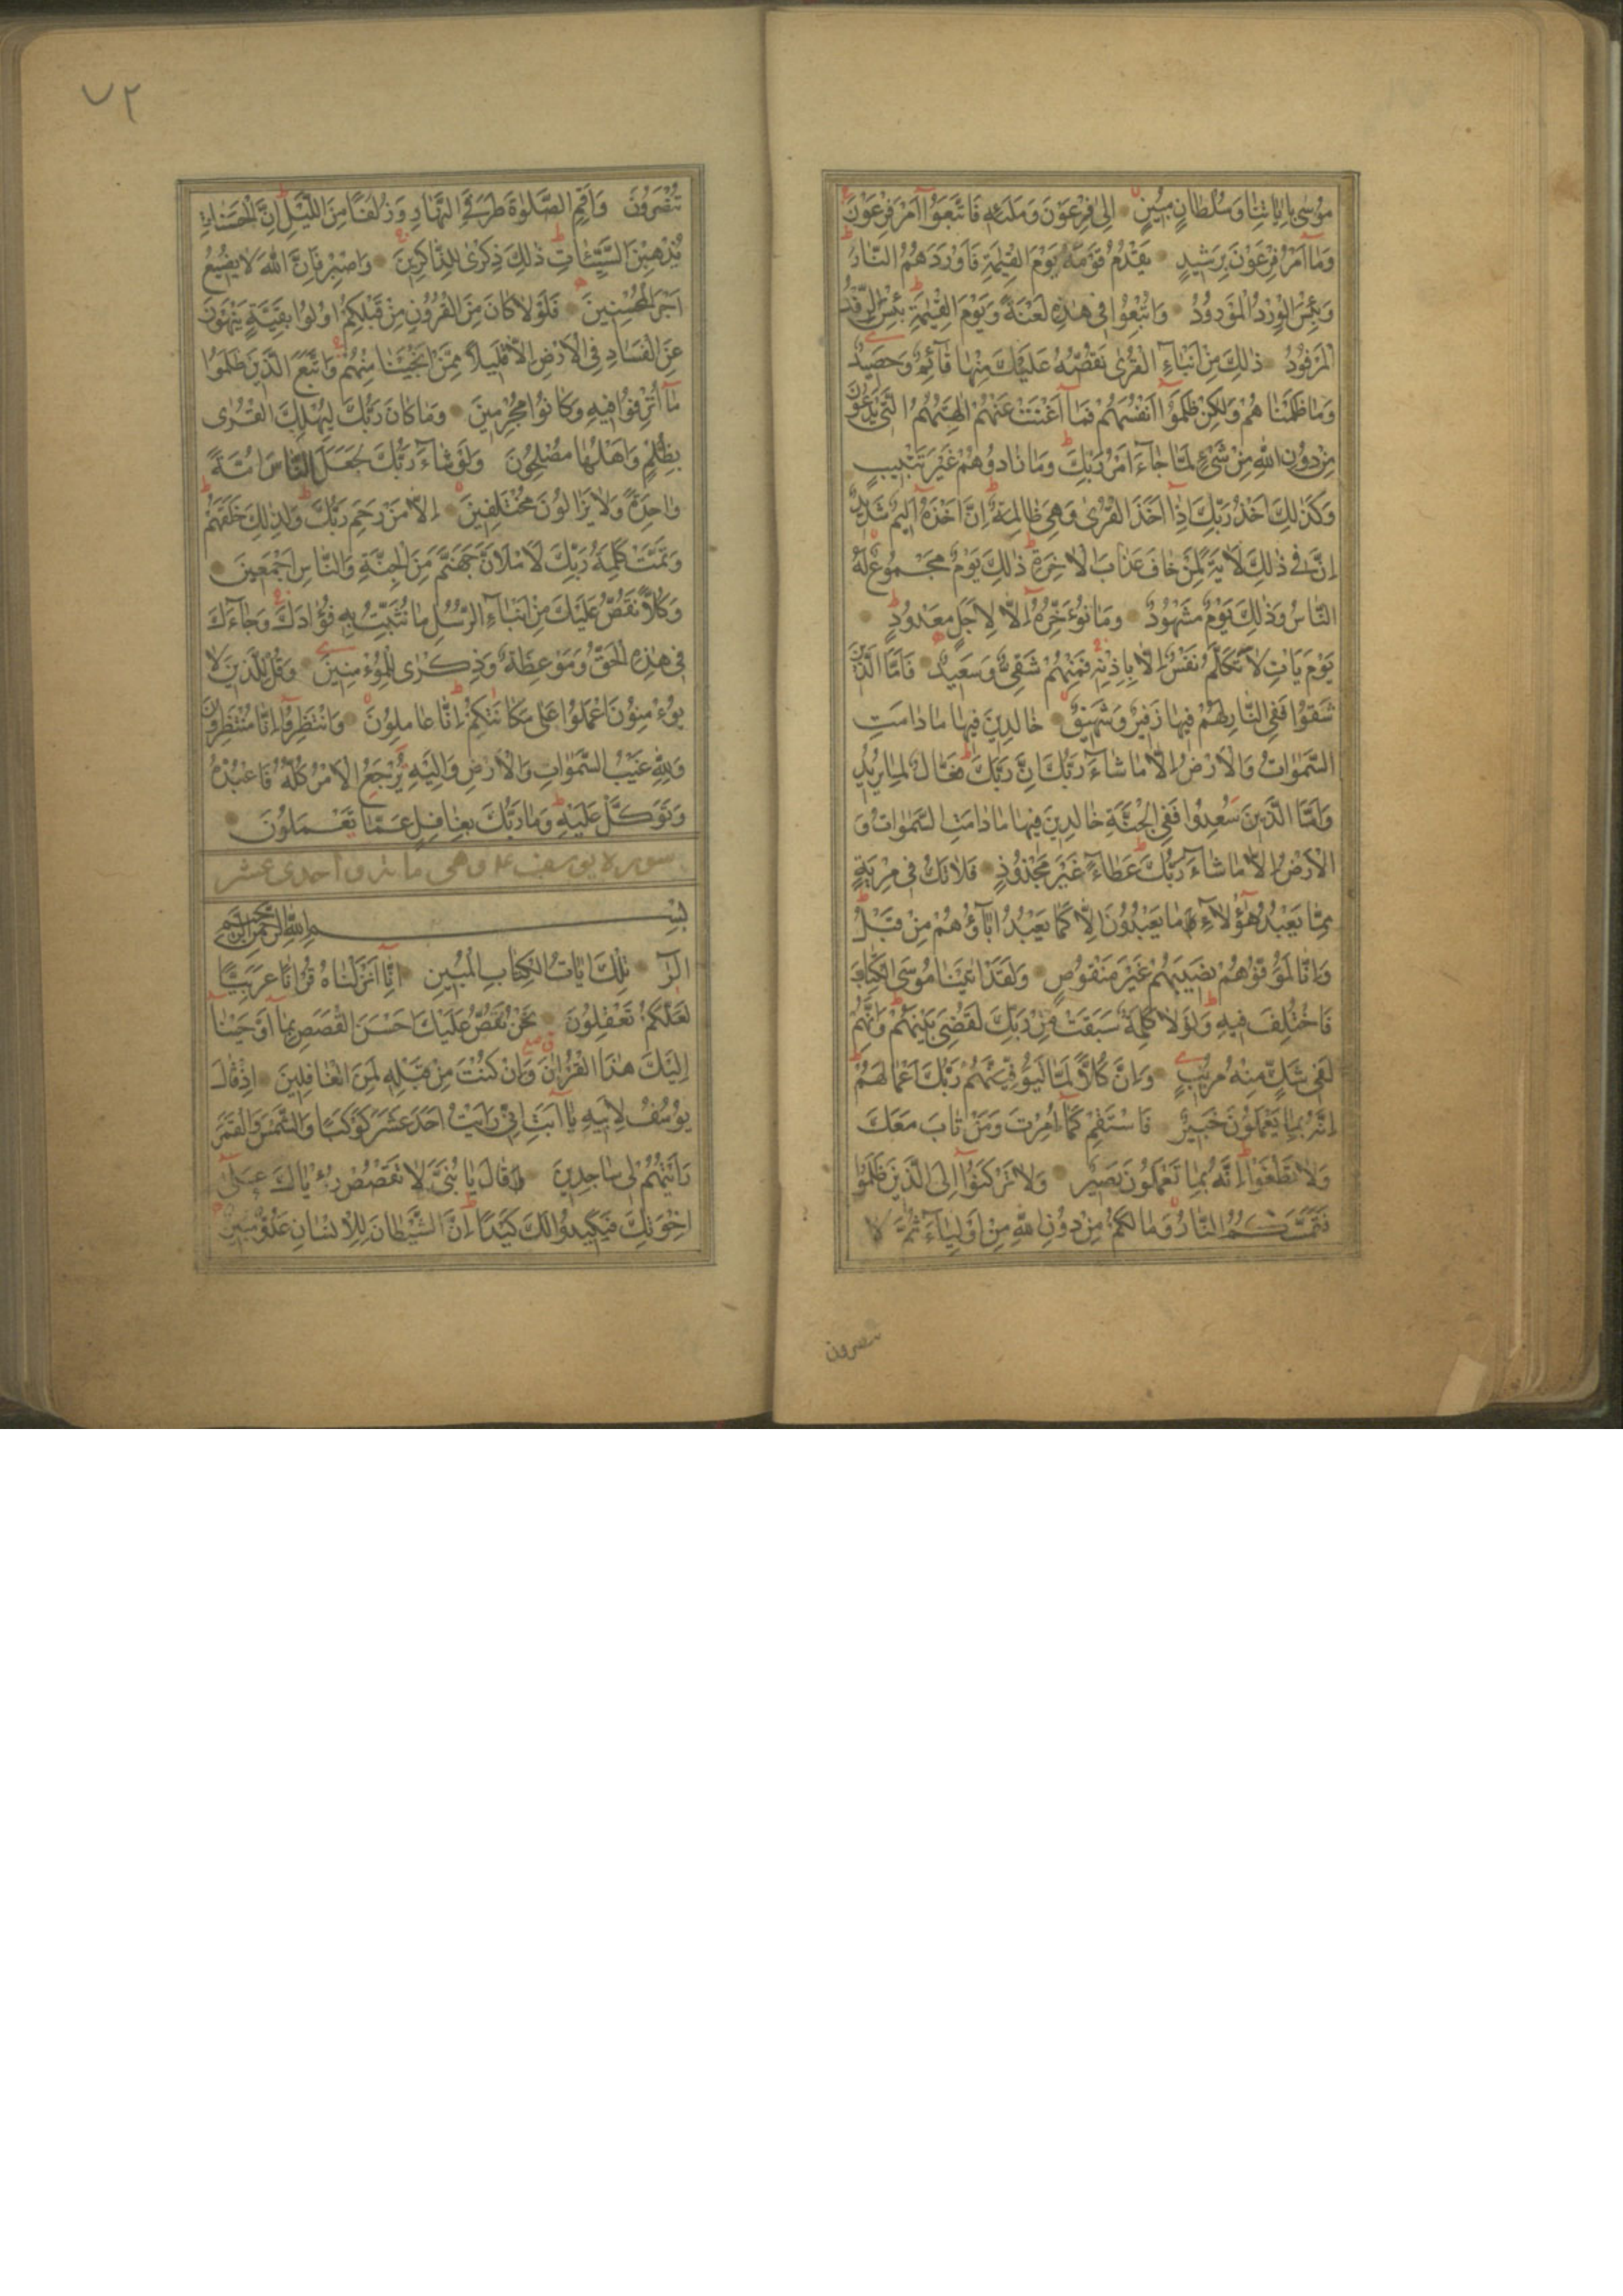 مُوسٰى بِاٰيَاتِنَا وَسُلْطَانٍ مُبِينٍ اِلٰى فِرْعَوْنَ وَمَلَئِهِ فَاتَّبَعُوٓا اَمْرَ فِرْعَوْنَ
وَمَآ اَمْرُ فِرْعَوْنَ بِرَشِيدٍ يَقْدُمُ قَوْمَهُ يَوْمَ الْقِيٰمَةِ فَاَوْرَدَهُمُ النَّارَ
وَبِئْسَ الْوِرْدُ الْمَوْرُودُ وَاُتْبِعُوا فِى هٰذِهِ لَعْنَةً وَيَوْمَ الْقِيٰمَةِ بِئْسَ الرِّفْدُ
الْمَرْفُودُ ذٰلِكَ مِنْ اَنْبَآءِ الْقُرٰى نَقُصُّهُ عَلَيْكَ مِنْهَا قَآئِمٌ وَحَصِيدٌ
وَمَا ظَلَمْنَاهُمْ وَلٰكِنْ ظَلَمُوٓا اَنْفُسَهُمْ فَمَآ اَغْنَتْ عَنْهُمْ اٰلِهَتُهُمُ الَّتِى يَدْعُونَ
مِنْ دُونِ اللّٰهِ مِنْ شَىْءٍ لَمَّا جَآءَ اَمْرُ رَبِّكَ وَمَا زَادُوهُمْ غَيْرَ تَتْبِيبٍ
وَكَذٰلِكَ اَخْذُ رَبِّكَ اِذَآ اَخَذَ الْقُرٰى وَهِىَ ظَالِمَةٌ اِنَّ اَخْذَهُٓ اَلِيمٌ شَدِيدٌ
اِنَّ فِى ذٰلِكَ لَاٰيَةً لِمَنْ خَافَ عَذَابَ الْاٰخِرَةِ ذٰلِكَ يَوْمٌ مَجْمُوعٌ لَهُ
النَّاسُ وَذٰلِكَ يَوْمٌ مَشْهُودٌ وَمَا نُؤَخِّرُهُٓ اِلَّا لِاَجَلٍ مَعْدُودٍ
يَوْمَ يَاْتِ لَا تَكَلَّمُ نَفْسٌ اِلَّا بِاِذْنِهِ فَمِنْهُمْ شَقِىٌّ وَسَعِيدٌ فَاَمَّا الَّذِينَ
شَقُوا فَفِى النَّارِ لَهُمْ فِيهَا زَفِيرٌ وَشَهِيقٌ خَالِدِينَ فِيهَا مَا دَامَتِ
السَّمٰوَاتُ وَالْاَرْضُ اِلَّا مَا شَآءَ رَبُّكَ اِنَّ رَبَّكَ فَعَّالٌ لِمَا يُرِيدُ
وَاَمَّا الَّذِينَ سُعِدُوا فَفِى الْجَنَّةِ خَالِدِينَ فِيهَا مَا دَامَتِ السَّمٰوَاتُ وَ
الْاَرْضُ اِلَّا مَا شَآءَ رَبُّكَ عَطَآءً غَيْرَ مَجْذُوذٍ فَلَا تَكُ فِى مِرْيَةٍ
مِمَّا يَعْبُدُ هٰٓؤُلَآءِ مَا يَعْبُدُونَ اِلَّا كَمَا يَعْبُدُ اٰبَآؤُهُمْ مِنْ قَبْلُ
وَاِنَّا لَمُوَفُّوهُمْ نَصِيبَهُمْ غَيْرَ مَنْقُوصٍ وَلَقَدْ اٰتَيْنَا مُوسَى الْكِتَابَ
فَاخْتُلِفَ فِيهِ وَلَوْلَا كَلِمَةٌ سَبَقَتْ مِنْ رَبِّكَ لَقُضِىَ بَيْنَهُمْ وَاِنَّهُمْ
لَفِى شَكٍّ مِنْهُ مُرِيبٍ وَاِنَّ كُلًّا لَمَّا لَيُوَفِّيَنَّهُمْ رَبُّكَ اَعْمَالَهُمْ
اِنَّهُ بِمَا يَعْمَلُونَ خَبِيرٌ فَاسْتَقِمْ كَمَآ اُمِرْتَ وَمَنْ تَابَ مَعَكَ
وَلَا تَطْغَوْا اِنَّهُ بِمَا تَعْمَلُونَ بَصِيرٌ وَلَا تَرْكَنُوٓا اِلَى الَّذِينَ ظَلَمُوا
فَتَمَسَّكُمُ النَّارُ وَمَا لَكُمْ مِنْ دُونِ اللّٰهِ مِنْ اَوْلِيَآءَ ثُمَّ لَا
٧٢
تُنْصَرُونَ وَاَقِمِ الصَّلٰوةَ طَرَفَىِ النَّهَارِ وَزُلَفًا مِنَ اللَّيْلِ اِنَّ الْحَسَنَاتِ
يُذْهِبْنَ السَّيِّئَاتِ ذٰلِكَ ذِكْرٰى لِلذَّاكِرِينَ وَاصْبِرْ فَاِنَّ اللّٰهَ لَا يُضِيعُ
اَجْرَ الْمُحْسِنِينَ فَلَوْلَا كَانَ مِنَ الْقُرُونِ مِنْ قَبْلِكُمْ اُولُوا بَقِيَّةٍ يَنْهَوْنَ
عَنِ الْفَسَادِ فِى الْاَرْضِ اِلَّا قَلِيلًا مِمَّنْ اَنْجَيْنَا مِنْهُمْ وَاتَّبَعَ الَّذِينَ ظَلَمُوا
مَآ اُتْرِفُوا فِيهِ وَكَانُوا مُجْرِمِينَ وَمَا كَانَ رَبُّكَ لِيُهْلِكَ الْقُرٰى
بِظُلْمٍ وَاَهْلُهَا مُصْلِحُونَ وَلَوْ شَآءَ رَبُّكَ لَجَعَلَ النَّاسَ اُمَّةً
وَاحِدَةً وَلَا يَزَالُونَ مُخْتَلِفِينَ اِلَّا مَنْ رَحِمَ رَبُّكَ وَلِذٰلِكَ خَلَقَهُمْ
وَتَمَّتْ كَلِمَةُ رَبِّكَ لَاَمْلَاَنَّ جَهَنَّمَ مِنَ الْجِنَّةِ وَالنَّاسِ اَجْمَعِينَ
وَكُلًّا نَقُصُّ عَلَيْكَ مِنْ اَنْبَآءِ الرُّسُلِ مَا نُثَبِّتُ بِهِ فُؤَادَكَ وَجَآءَكَ
فِى هٰذِهِ الْحَقُّ وَمَوْعِظَةٌ وَذِكْرٰى لِلْمُؤْمِنِينَ وَقُلْ لِلَّذِينَ لَا
يُؤْمِنُونَ اعْمَلُوا عَلٰى مَكَانَتِكُمْ اِنَّا عَامِلُونَ وَانْتَظِرُوٓا اِنَّا مُنْتَظِرُونَ
وَلِلّٰهِ غَيْبُ السَّمٰوَاتِ وَالْاَرْضِ وَاِلَيْهِ يُرْجَعُ الْاَمْرُ كُلُّهُ فَاعْبُدْهُ
وَتَوَكَّلْ عَلَيْهِ وَمَا رَبُّكَ بِغَافِلٍ عَمَّا تَعْمَلُونَ
سوره يوسف ع م وهى مائة واحدى عشر
بِسْمِ اللّٰهِ الرَّحْمٰنِ الرَّحِيمِ
الٓرٰ تِلْكَ اٰيَاتُ الْكِتَابِ الْمُبِينِ اِنَّآ اَنْزَلْنَاهُ قُرْاٰنًا عَرَبِيًّا
لَعَلَّكُمْ تَعْقِلُونَ نَحْنُ نَقُصُّ عَلَيْكَ اَحْسَنَ الْقَصَصِ بِمَآ اَوْحَيْنَآ
اِلَيْكَ هٰذَا الْقُرْاٰنَ وَاِنْ كُنْتَ مِنْ قَبْلِهِ لَمِنَ الْغَافِلِينَ اِذْ قَالَ
يُوسُفُ لِاَبِيهِ يَآ اَبَتِ اِنِّى رَاَيْتُ اَحَدَ عَشَرَ كَوْكَبًا وَالشَّمْسَ وَالْقَمَرَ
رَاَيْتُهُمْ لِى سَاجِدِينَ قَالَ يَا بُنَىَّ لَا تَقْصُصْ رُءْيَاكَ عَلٰٓى
اِخْوَتِكَ فَيَكِيدُوا لَكَ كَيْدًا اِنَّ الشَّيْطَانَ لِلْاِنْسَانِ عَدُوٌّ مُبِينٌ